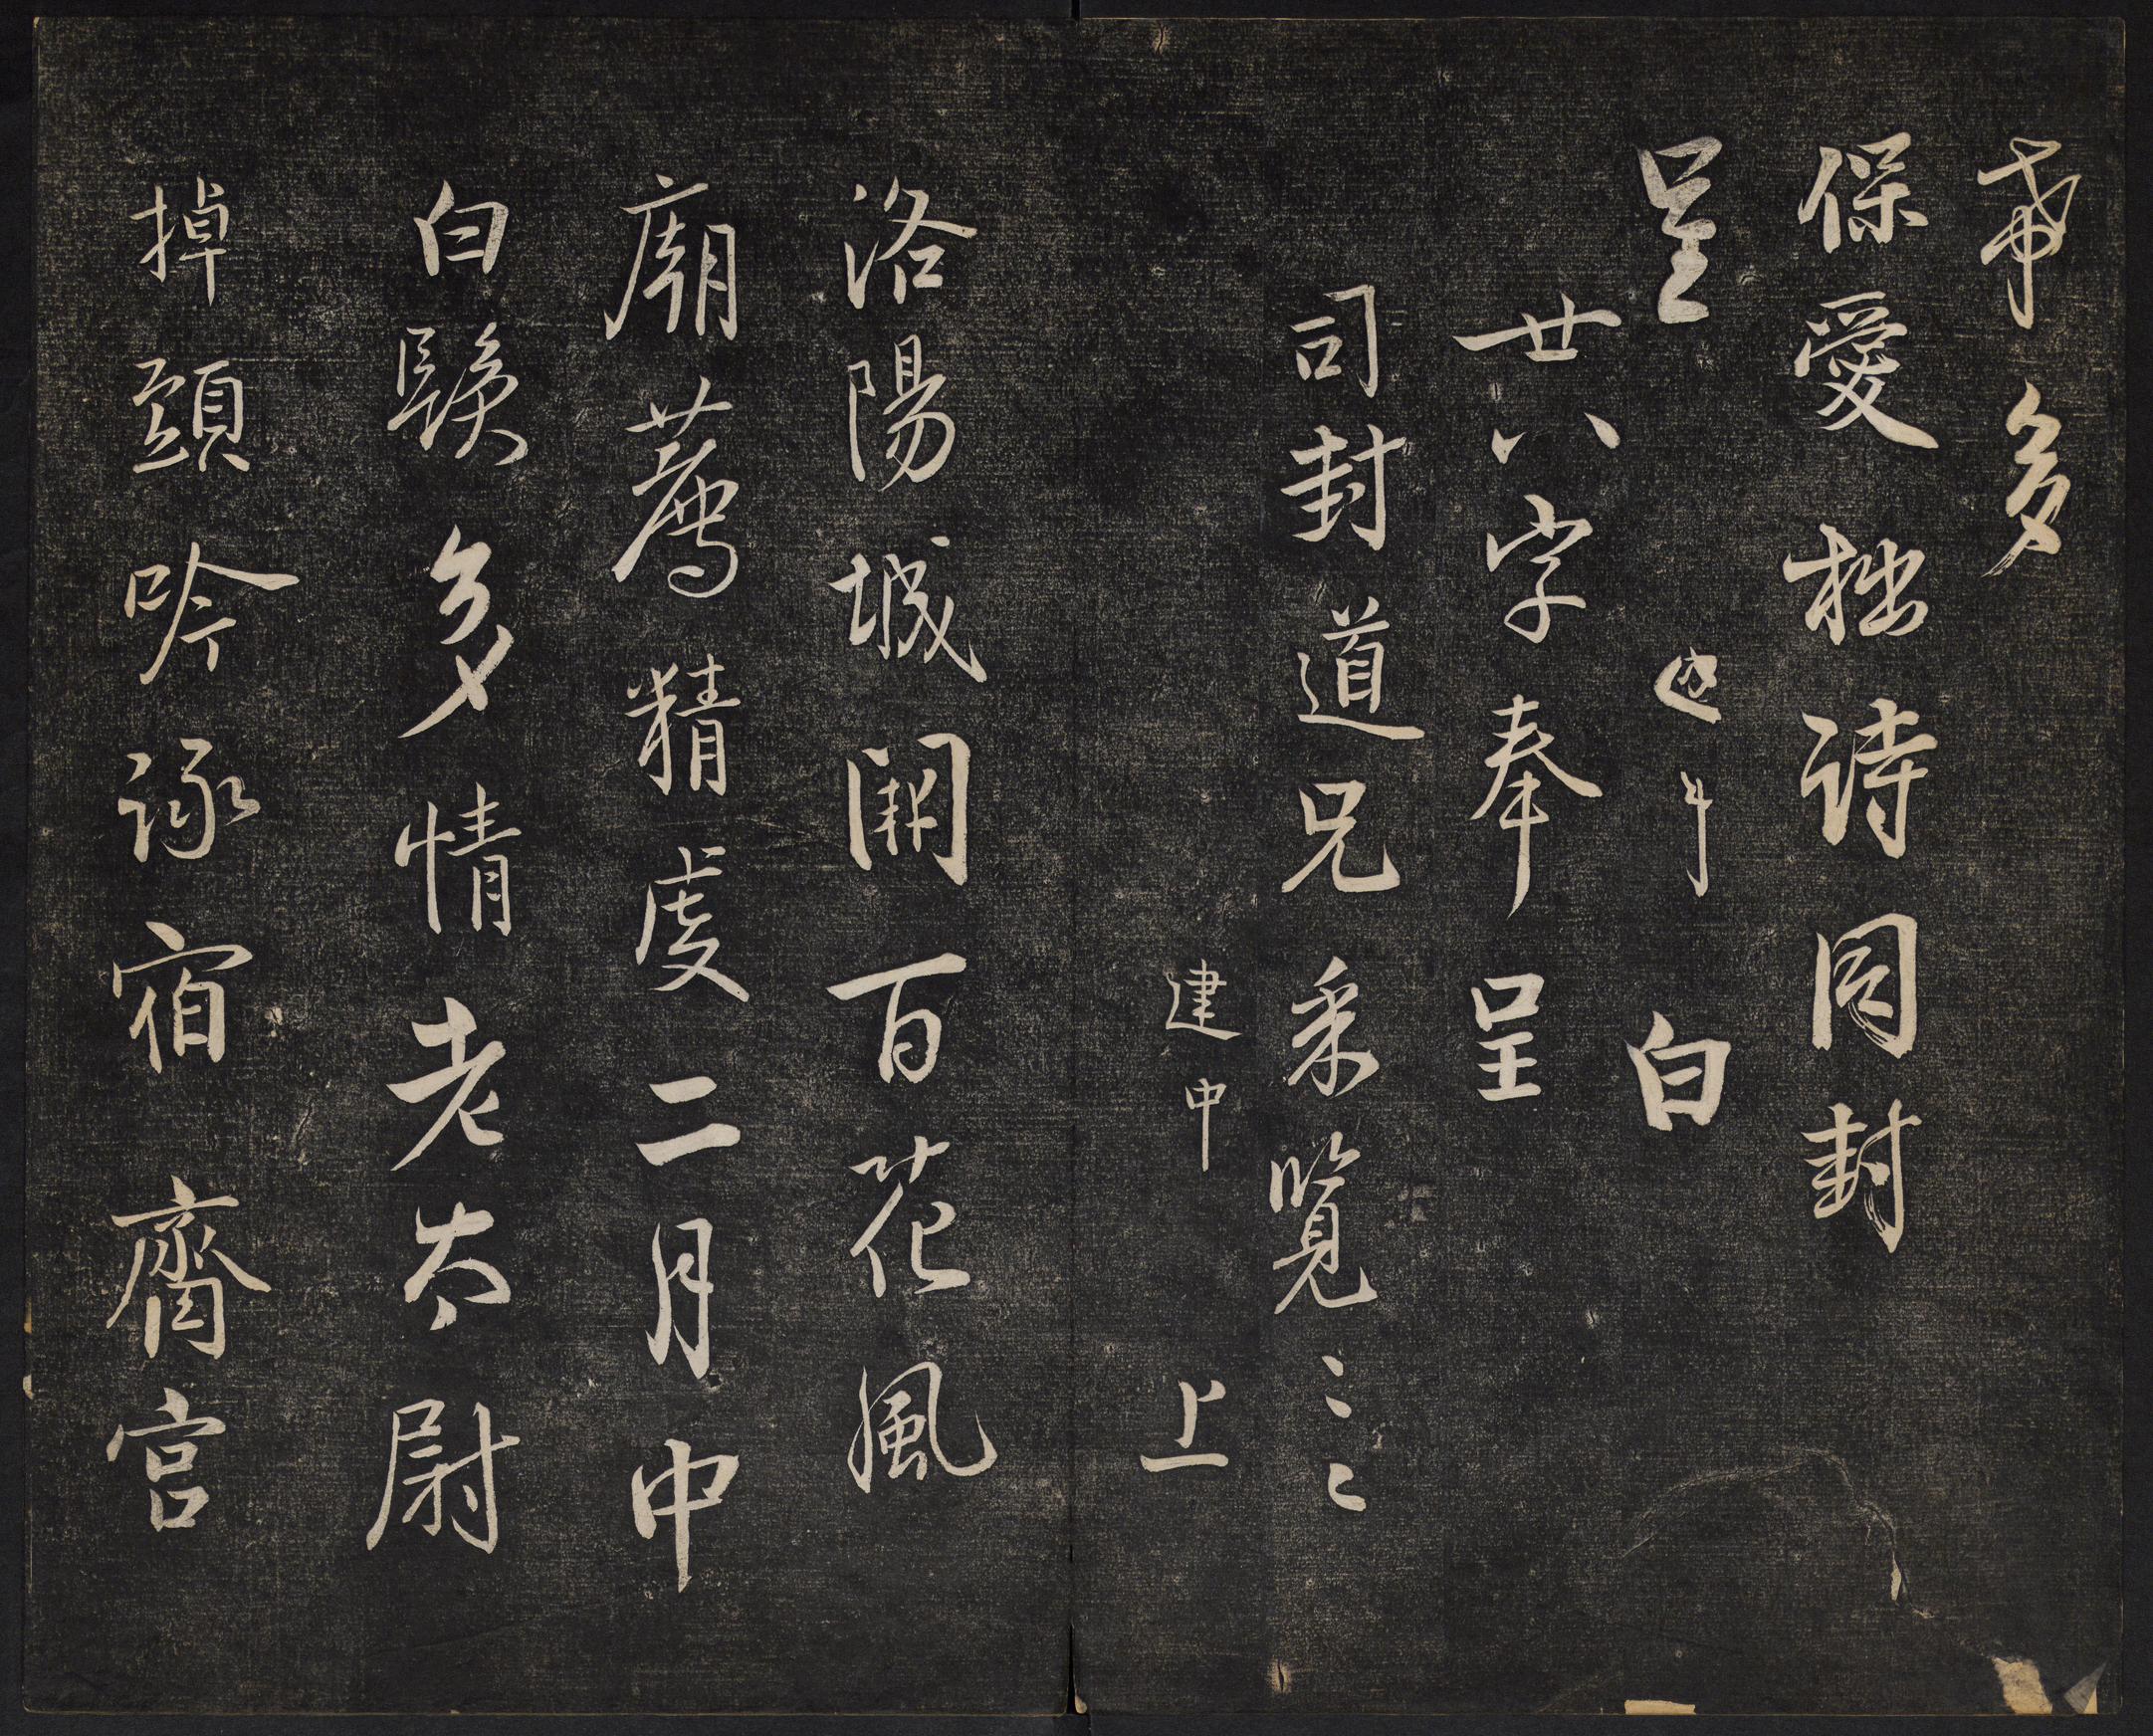 希多
保愛拙詩同封
呈　建中白
廿八字奉呈
司封道兄采覽〻〻
建中上
洛陽城闕百花風
廟薦精虔二月中
白鬢多情老太尉
掉頭吟詠宿齋宮